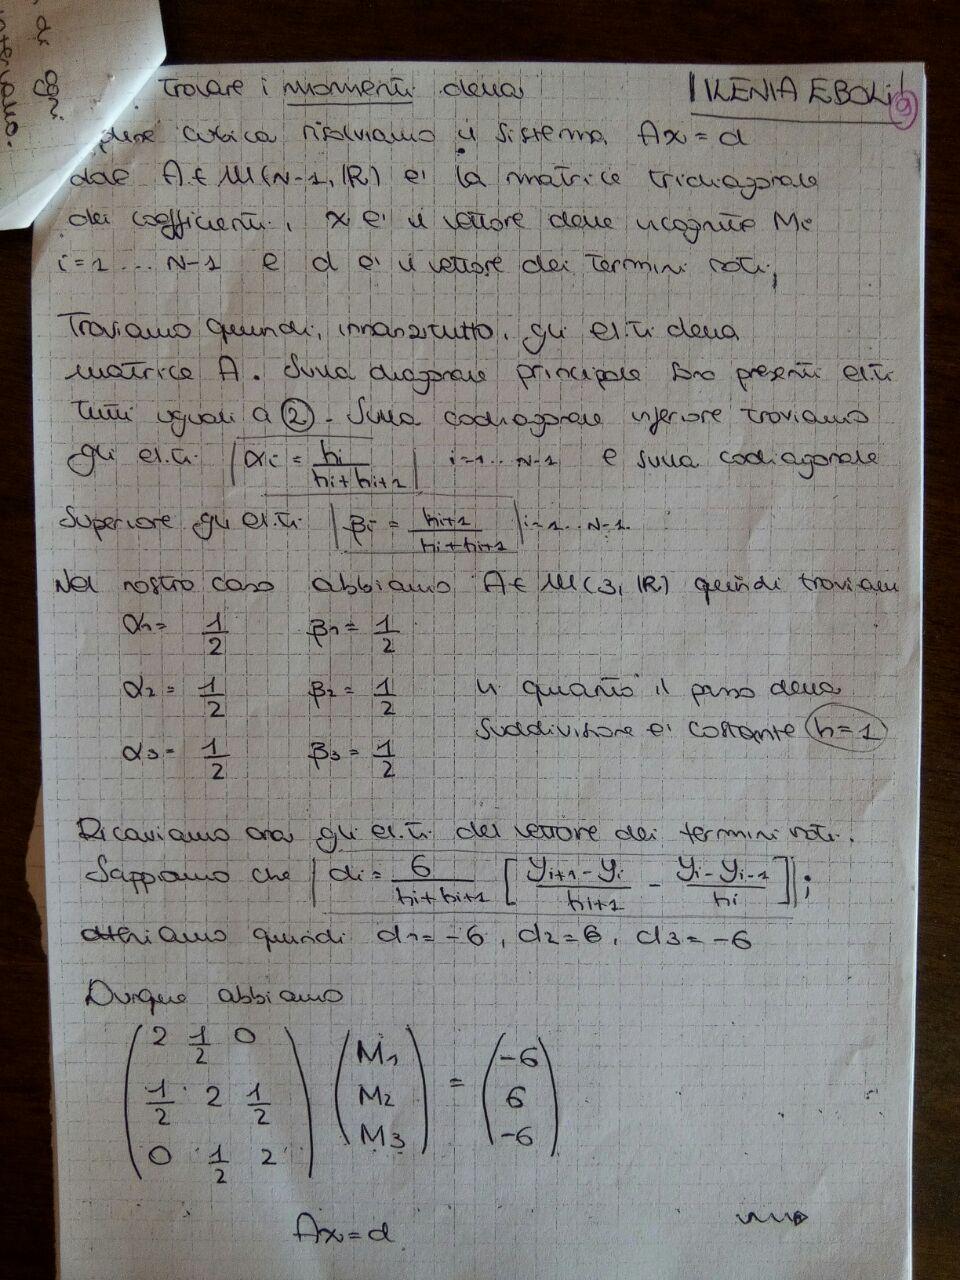 Trovare i momenti della
ILENIA EBOLI
9
cubica risolviamo il sistema Ax = d
dove A ∈ M(N-1, ℝ) e' la matrice tridiagonale
dei coefficienti, x e' il vettore delle incognite Mi
i=1 ... N-1 e d e' il vettore dei termini noti;
Troviamo quindi, innanzitutto, gli el.ti della
matrice A. Sulla diagonale principale sono presenti el.ti
tutti uguali a 2. Sulla codiagonale inferiore troviamo
gli el.ti αi = hi / (hi + hi+1) i=1 ... N-1 e sulla codiagonale
superiore gli el.ti βi = hi+1 / (hi + hi+1) i=1 ... N-1.
Nel nostro caso abbiamo A ∈ M(3, ℝ) quindi troviam
α1 = 1/2 β1 = 1/2
α2 = 1/2 β2 = 1/2 in quanto il passo della
suddivisione e' costante h=1
α3 = 1/2 β3 = 1/2
Ricaviamo ora gli el.ti del vettore dei termini noti.
Sappiamo che di = 6 / (hi + hi+1) [ (yi+1 - yi) / hi+1 - (yi - yi-1) / hi ];
otteniamo quindi d1 = -6, d2 = 6, d3 = -6
Dunque abbiamo
2 1/2 0 M1 -6
1/2 2 1/2 M2 = 6
0 1/2 2 M3 -6
Ax = d